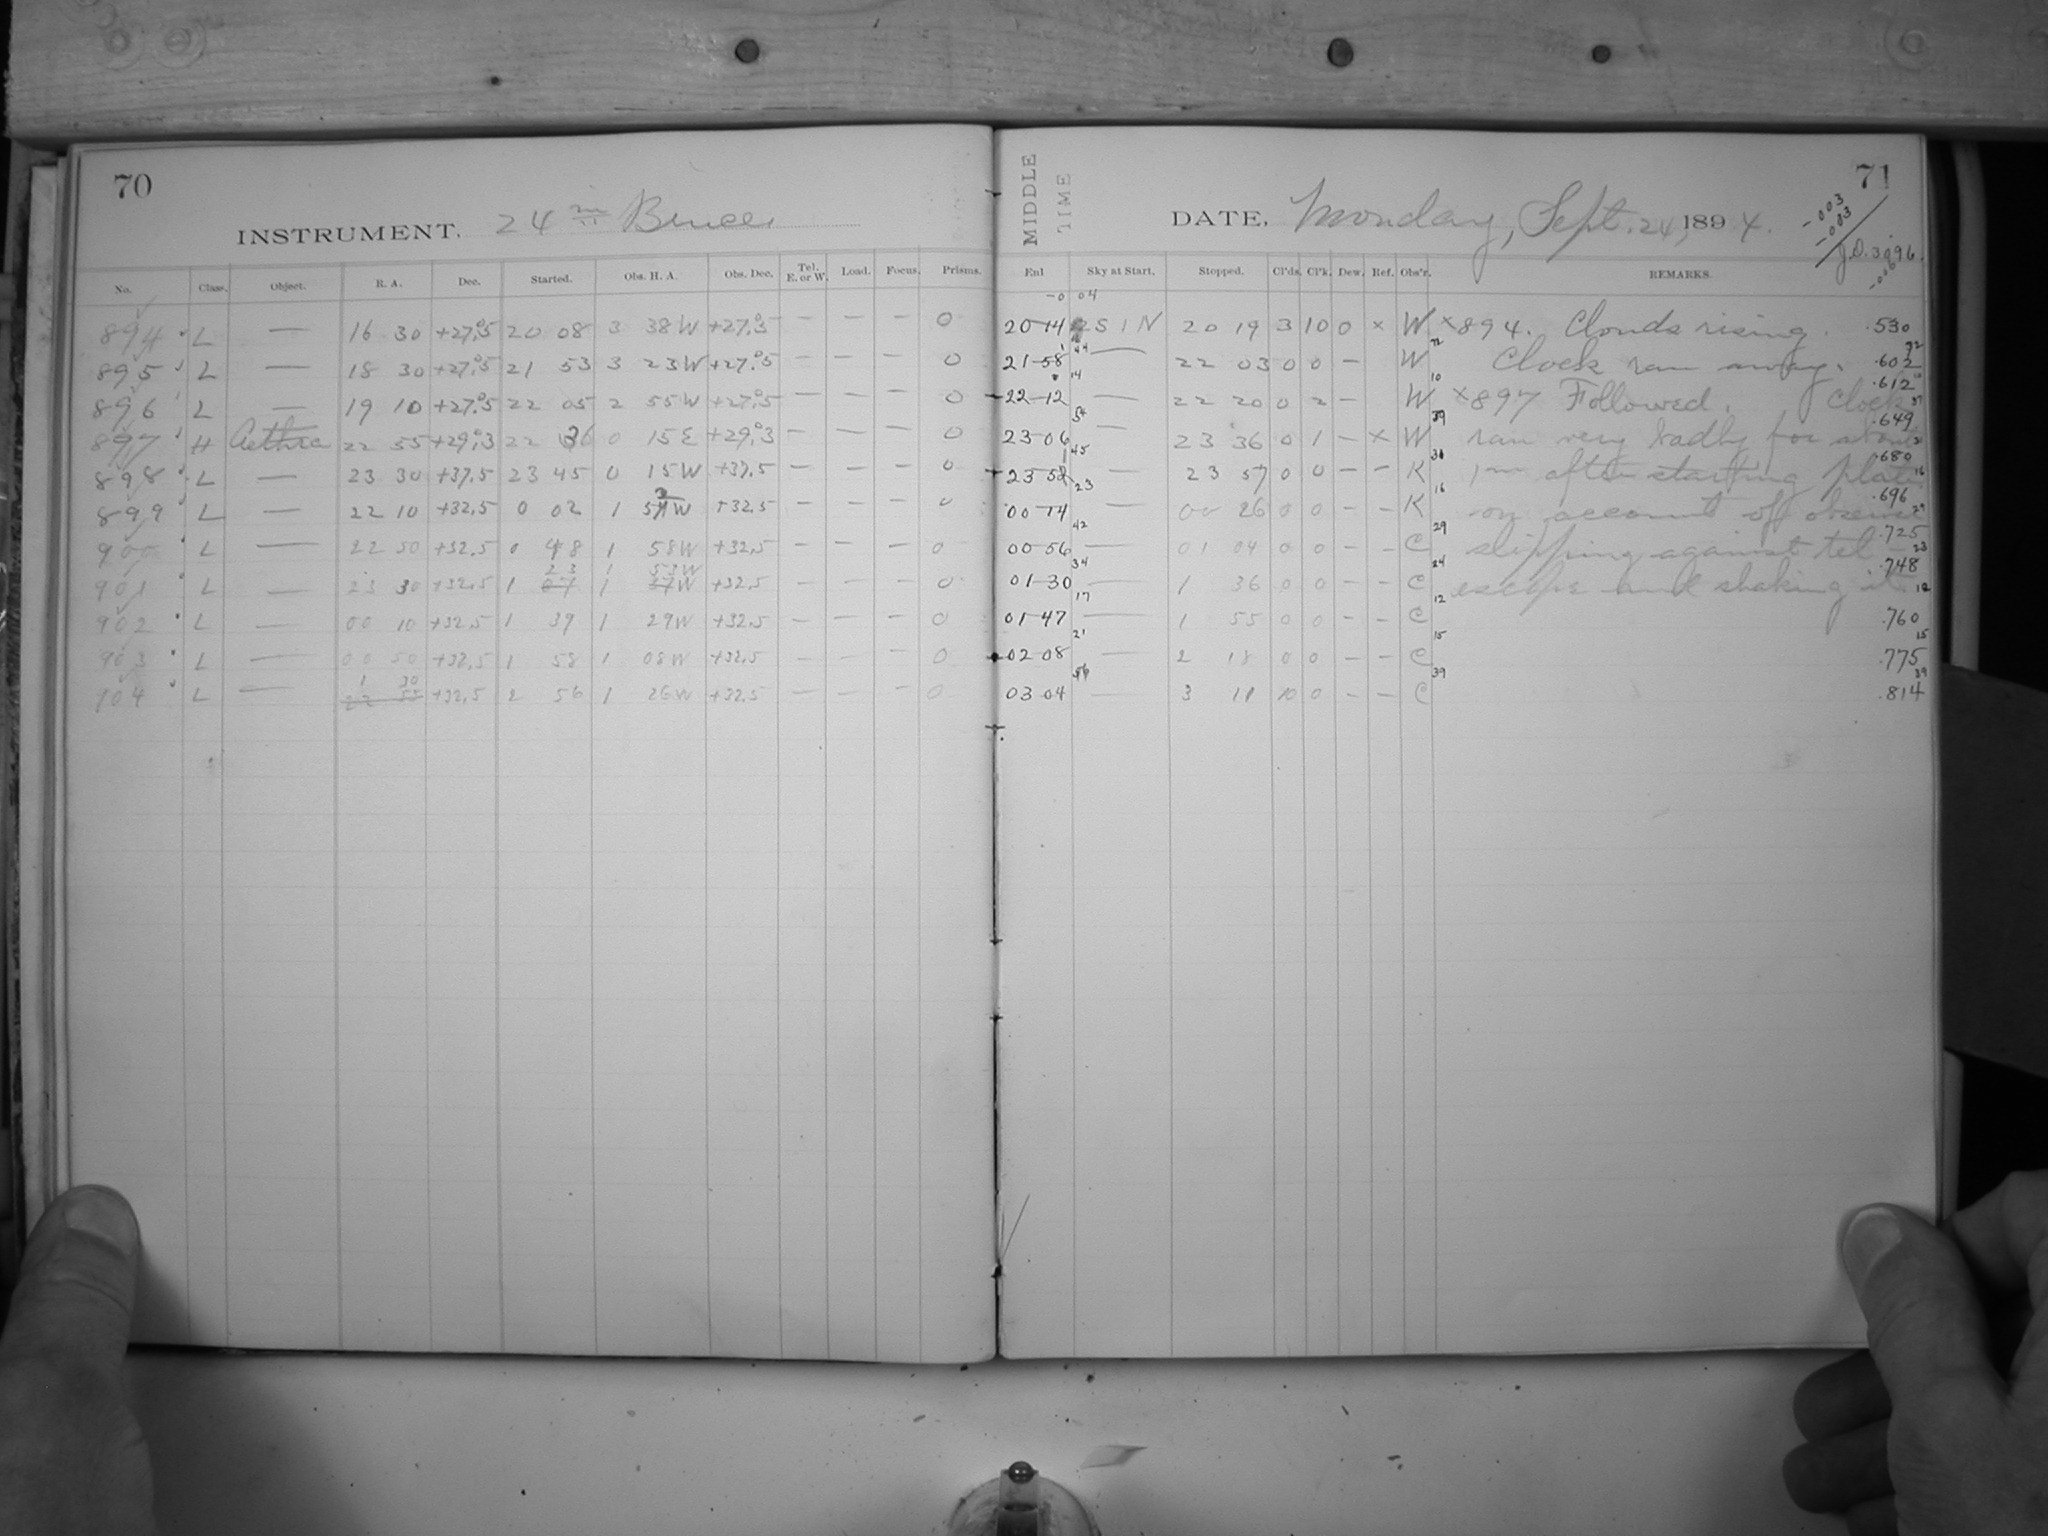 70
INSTRUMENT. 24 in Bruce
No. Class. Object. R. A. Dec. Started. Obs. H. A. Obs. Dec. Tel. E. or W. Load. Focus. Prisms.
894 L — 16 30 +27.°5 20 08 3 38W +27.°5 — — — — 0
895 L — 18 30 +27.°5 21 53 3 23W +27.°5 — — — 0
896 L — 19 10 +27.°5 22 05 2 55W +27.°5 — — — — 0
897 H Aethra 22 55 +29.°3 22 36 0 15E +29.°3 — — — — 0
898 L — 23 30 +37.5 23 45 0 15W +37.5 — — — — 0
899 L — 22 10 +32.5 0 02 1 W +32.5 — — — — 0
900 L — 22 50 +32.5 0 48 1 58W +32.5 — — — — 0
901 L — 23 30 +32.5 1 23 1 53W +32.5 — — — — 0
902 L — 00 10 +32.5 1 39 1 29W +32.5 — — — — 0
903 L — 00 50 +32.5 1 58 1 08W +32.5 — — — — 0
904 L — 1 30 +32.5 2 56 1 26W +32.5 — — — — 0
MIDDLE TIME
71
DATE, Monday, Sept. 24, 1894.
-003
-003
J.D. 3096.
-006
Sky at Start. Stopped. Cl'ds. Cl'k. Dew. Ref. Obs'r. REMARKS.
-0 04
20 14 2S 1N 20 19 3 10 0 × W ×894. Clouds rising. .530
21 58 — 22 03 0 0 — W Clock ran away. .602
22 12 — 22 20 0 2 — W ×897 Followed. Clock .612
23 06 — 23 36 0 1 — × W ran very badly for about .649
23 52 — 23 57 0 0 — — K 1m after starting plate .680
00 14 — 00 26 0 0 — — K on account of .696
00 56 — 01 04 0 0 — — C slipping against tel- .725
01 30 — 1 36 0 0 — — C escope and shaking it. .748
01 47 — 1 55 0 0 — — C .760
02 08 — 2 18 0 0 — — C .775
03 04 — 3 11 10 0 — — C .814